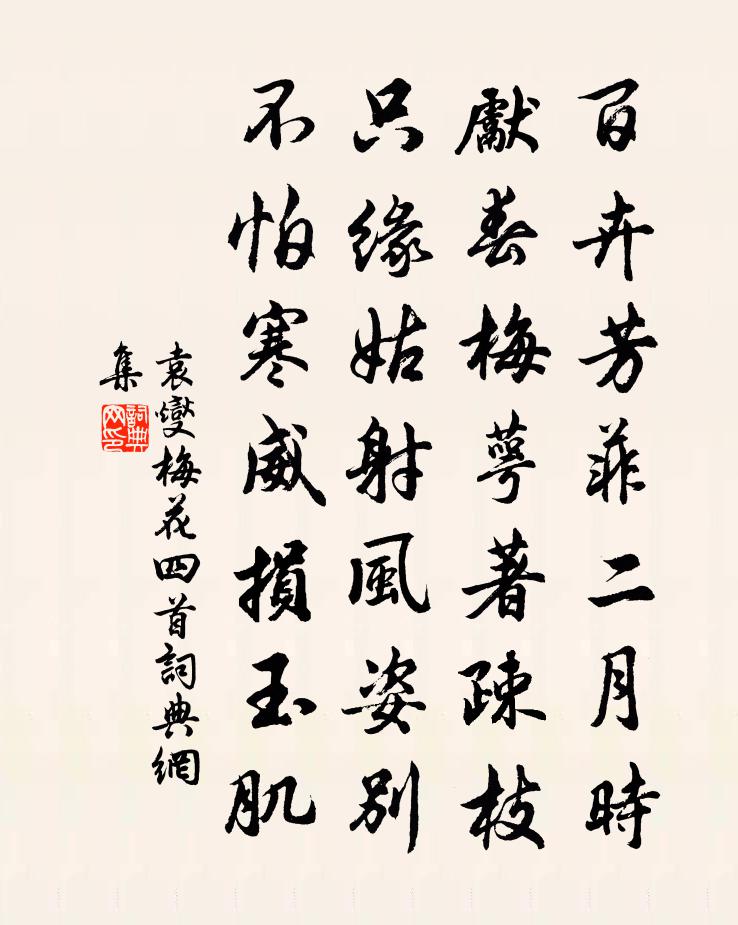 百卉芳菲二月時
獻春梅萼著疎枝
只緣姑射風姿別
不怕寒威損玉肌
袁燮梅花四首詞典網
集
詞典网印